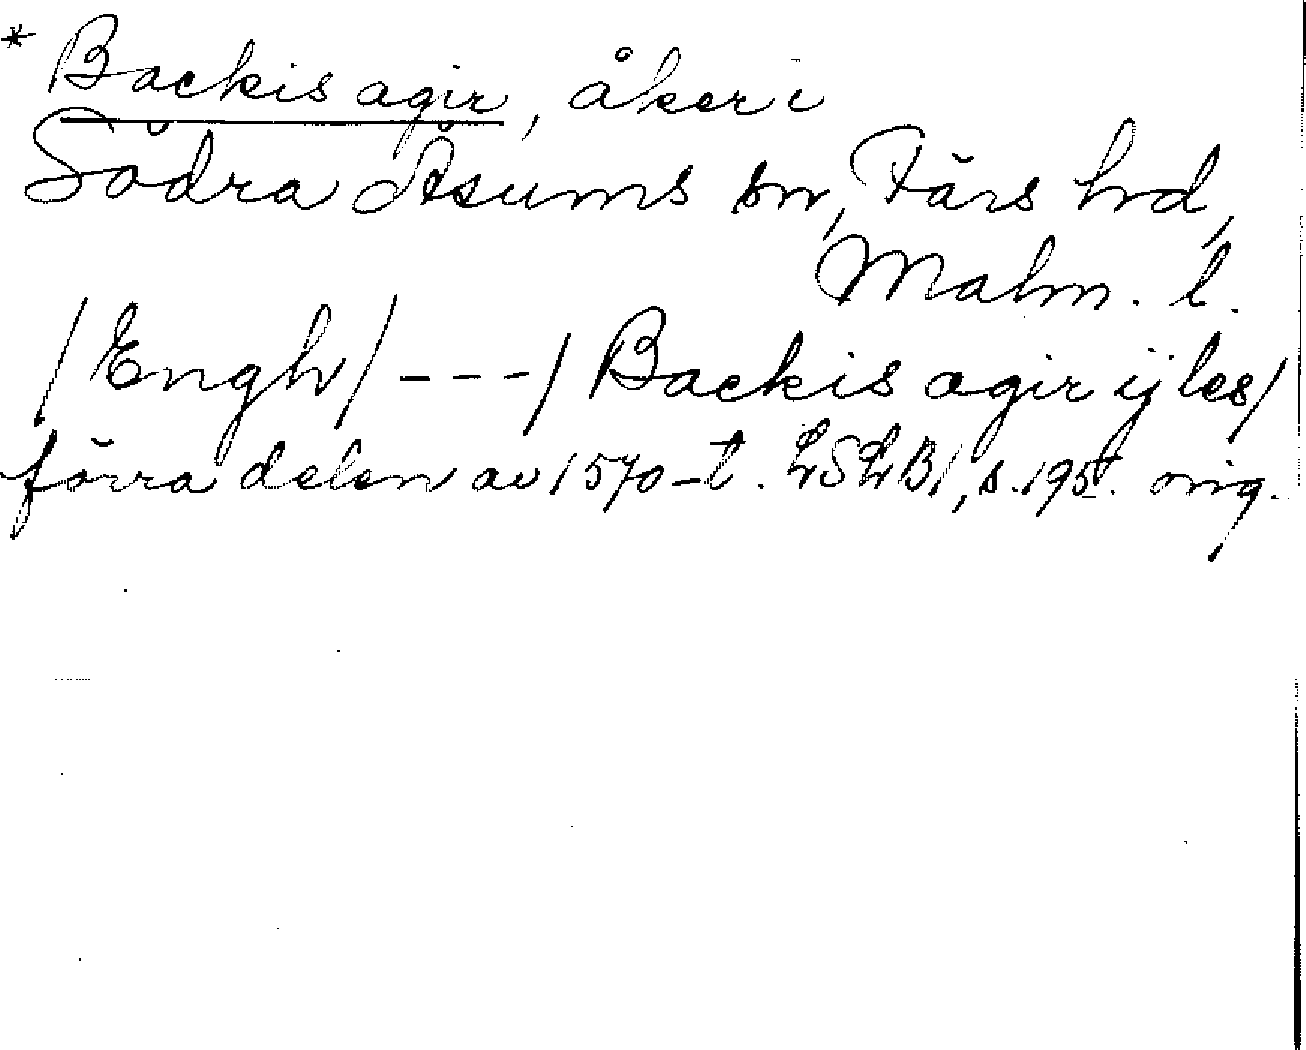 * Backis agir, åker i
Södra Åsums sn, Färs hd,
Malm. l.
/Engh/ - - - / Backis agir ij les/
förra delen av 1570-t. LSLB1, s. 195. orig.